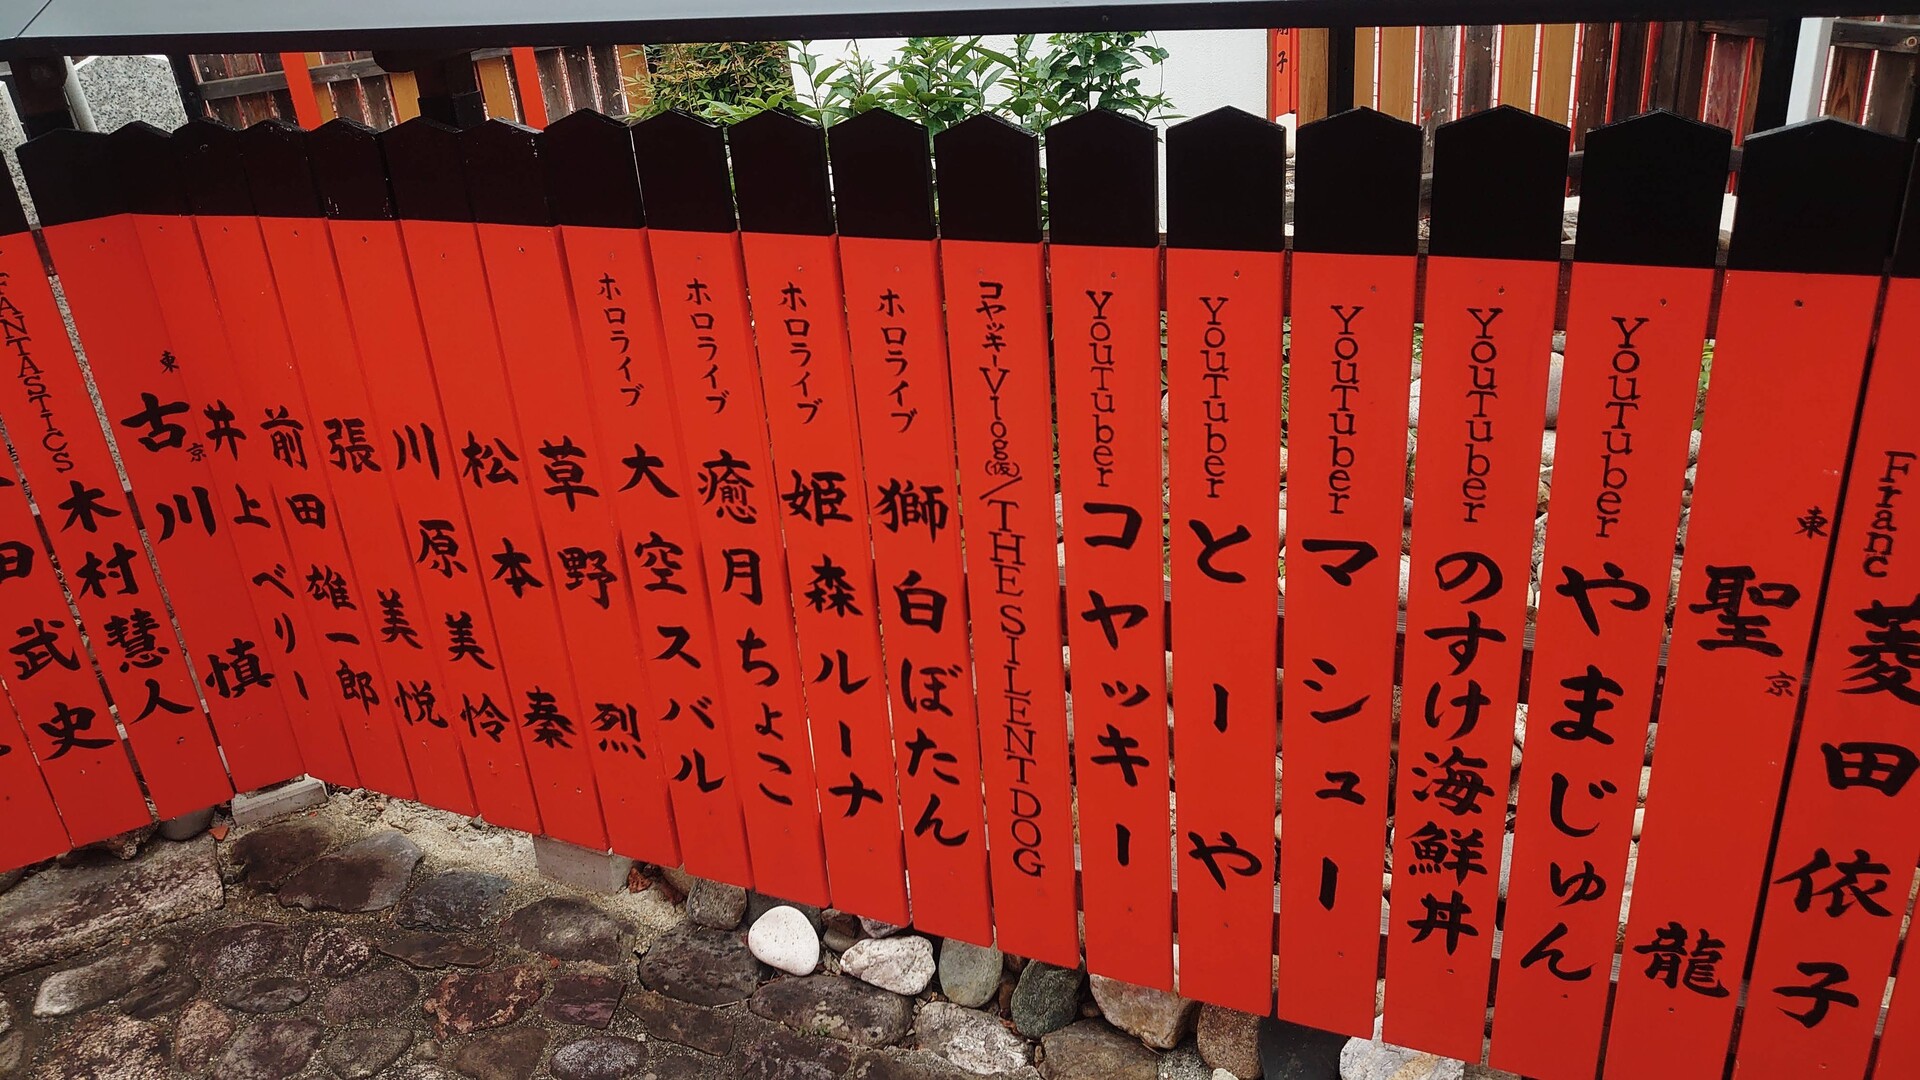 Franc 菱田依子
東京 聖龍
YouTuber やまじゅん
YouTuber のすけ海鮮丼
YouTuber マシュー
YouTuber とーや
YouTuber コヤッキー
コヤッキーVlog(仮)/THE SILENT DOG
ホロライブ 獅白ぼたん
ホロライブ 姫森ルーナ
ホロライブ 癒月ちょこ
ホロライブ 大空スバル
草野烈
松本秦
川原美怜
張美悦
前田雄一郎
井上ベリー
東京 古川慎
FANTASTICS 木村慧人
田武史